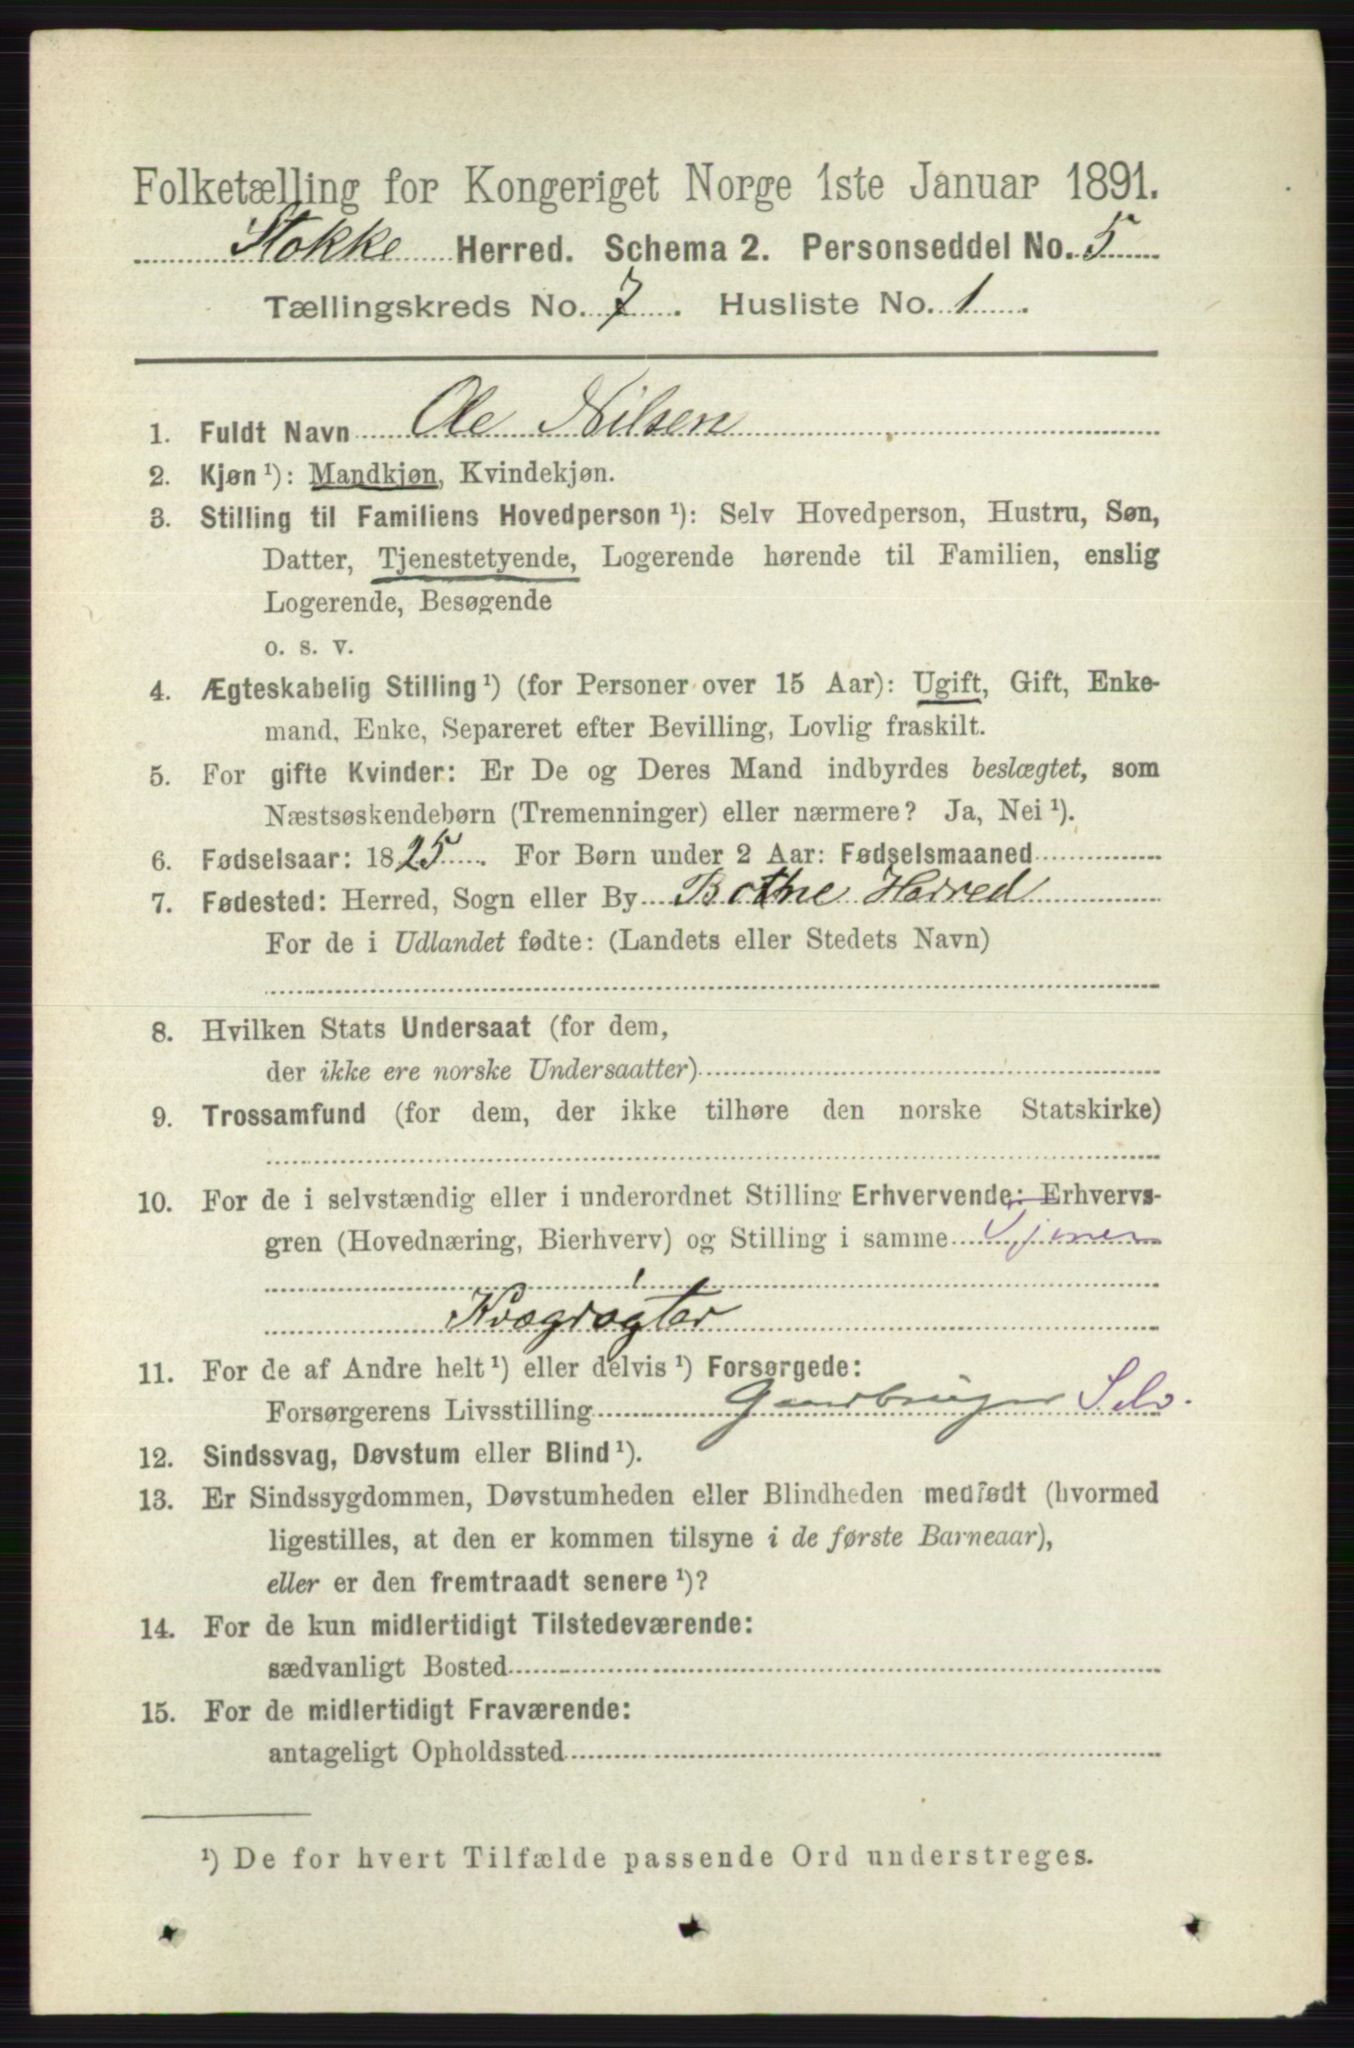 Folketælling for Kongeriget Norge 1ste Januar 1891.
Stokke Herred. Schema 2. Personseddel No. 5
Tællingskreds No. 7. Husliste No. 1.
1. Fuldt Navn Ole Nilsen
2. Kjøn ¹): Mandkjøn, Kvindekjøn.
3. Stilling til Familiens Hovedperson ¹): Selv Hovedperson, Hustru, Søn,
Datter, Tjenestetyende, Logerende hørende til Familien, enslig
Logerende, Besøgende
o. s. v.
4. Ægteskabelig Stilling ¹) (for Personer over 15 Aar): Ugift, Gift, Enke-
mand, Enke, Separeret efter Bevilling, Lovlig fraskilt.
5. For gifte Kvinder: Er De og Deres Mand indbyrdes beslægtet, som
Næstsøskendebørn (Tremenninger) eller nærmere? Ja, Nei ¹).
6. Fødselsaar: 1825. For Børn under 2 Aar: Fødselsmaaned
7. Fødested: Herred, Sogn eller By Bothne Herred
For de i Udlandet fødte: (Landets eller Stedets Navn)
8. Hvilken Stats Undersaat (for dem,
der ikke ere norske Undersaatter)
9. Trossamfund (for dem, der ikke tilhøre den norske Statskirke)
10. For de i selvstændig eller i underordnet Stilling Erhvervende: Erhvervs-
gren (Hovednæring, Bierhverv) og Stilling i samme Tjener
Kvægrøgter
11. For de af Andre helt ¹) eller delvis ¹) Forsørgede:
Forsørgerens Livsstilling Gaardbruger Selv.
12. Sindssvag, Døvstum eller Blind ¹).
13. Er Sindssygdommen, Døvstumheden eller Blindheden medfødt (hvormed
ligestilles, at den er kommen tilsyne i de første Barneaar),
eller er den fremtraadt senere ¹)?
14. For de kun midlertidigt Tilstedeværende:
sædvanligt Bosted
15. For de midlertidigt Fraværende:
antageligt Opholdssted
¹) De for hvert Tilfælde passende Ord understreges.